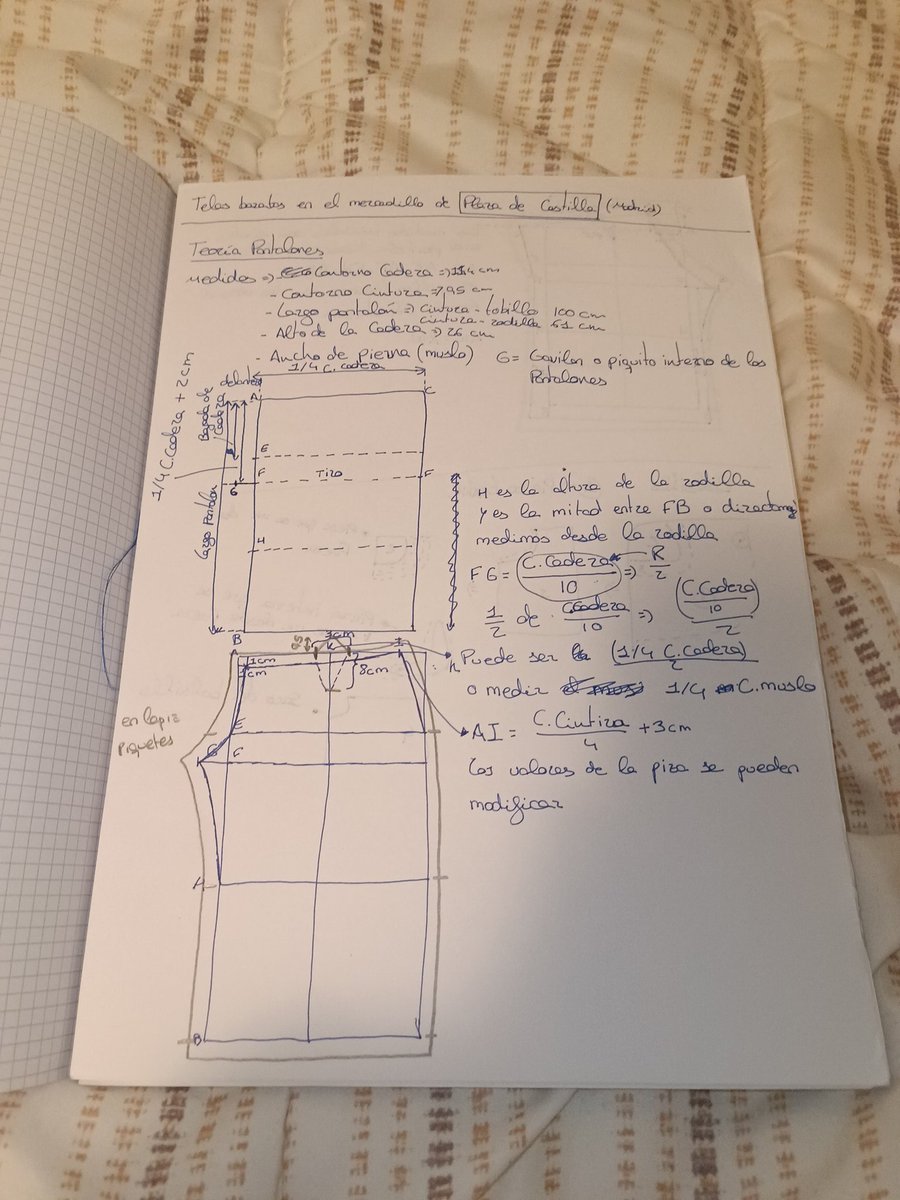 Telas baratas en el mercadillo de Plaza de Castilla (Madrid)
Teoría Pantalones
Medidas => Contorno Cadera => 114 cm
- Contorno Cintura => 79,5 cm
- Largo pantalón => Cintura - tobillo 100 cm
Cintura - rodilla 61 cm
- Alto de la Cadera => 26 cm
- Ancho de pierna (muslo)
G = Gavilan o piquito interno de los
Pantalones
1/4 C. Cadera
delantero
A
C
1/4 C.Cadera + 2 cm
Bajada de
Cadera
E
F
Tiro
F
6
Largo Pantalón
H
B
H es la altura de la rodilla
y es la mitad entre FB o directam
medimos desde la rodilla
FG = C.Cadera/10 => R/2
1/2 de C.Cadera/10 => (C.Cadera/10)/2
Puede ser (1/4 C.Cadera)/2
o medir 1/4 C.muslo
AI = C.Cintura/4 + 3cm
Los valores de la pinza se pueden
modificar
3cm
I
A
1cm
1cm
8cm
en lapiz
piquetes
E
G
F
H
B